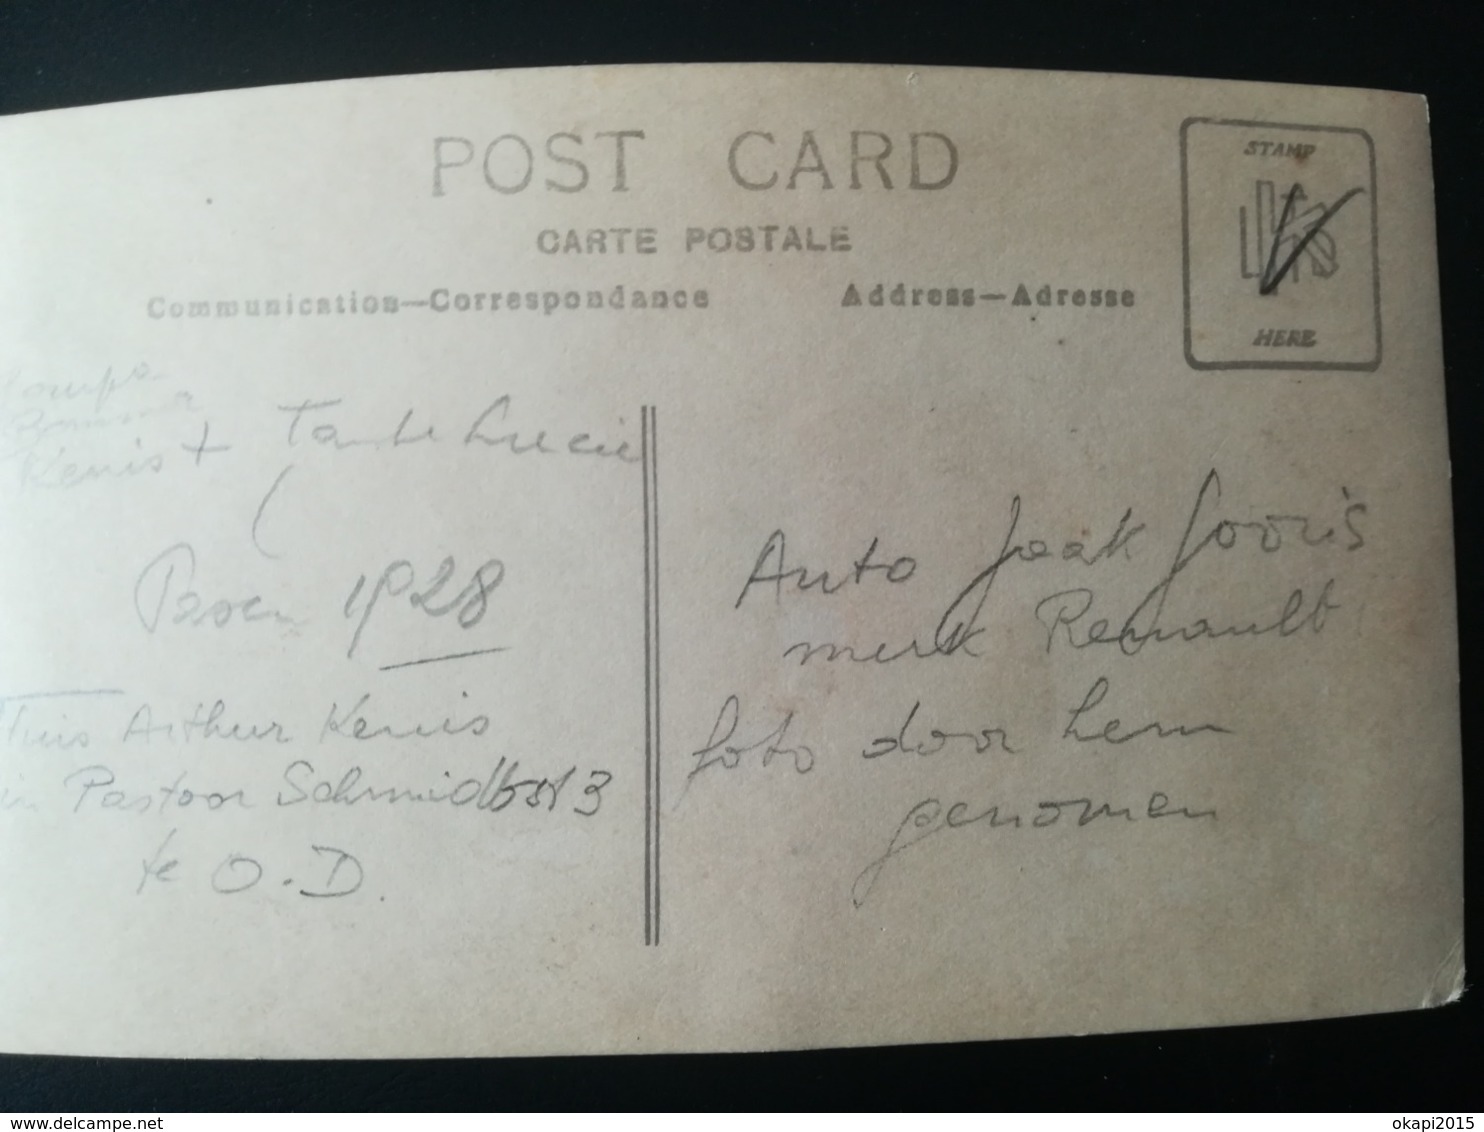 POST CARD
CARTE POSTALE
Communication—Correspondance
Address—Adresse
STAMP
HERE
Kenis + Tante Lucie
Pasen 1928
Thuis Arthur Kenis
Pastoor Schmidtstr 3
te O.D.
Auto Jaak Jooris
merk Renault
foto door hem
genomen
delcampe.net
okapi2015